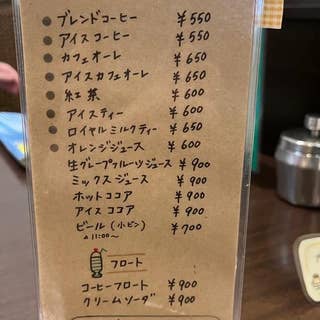 ● ブレンドコーヒー ¥550
● アイスコーヒー ¥550
● カフェオーレ ¥650
● アイスカフェオーレ ¥650
● 紅茶 ¥600
● アイスティー ¥600
● ロイヤルミルクティー ¥650
● オレンジジュース ¥600
生グレープフルーツジュース ¥900
ミックスジュース ¥900
ホットココア ¥900
アイスココア ¥900
ビール(小ビン) ¥700
▲11:00〜
フロート
コーヒーフロート ¥900
クリームソーダ ¥900